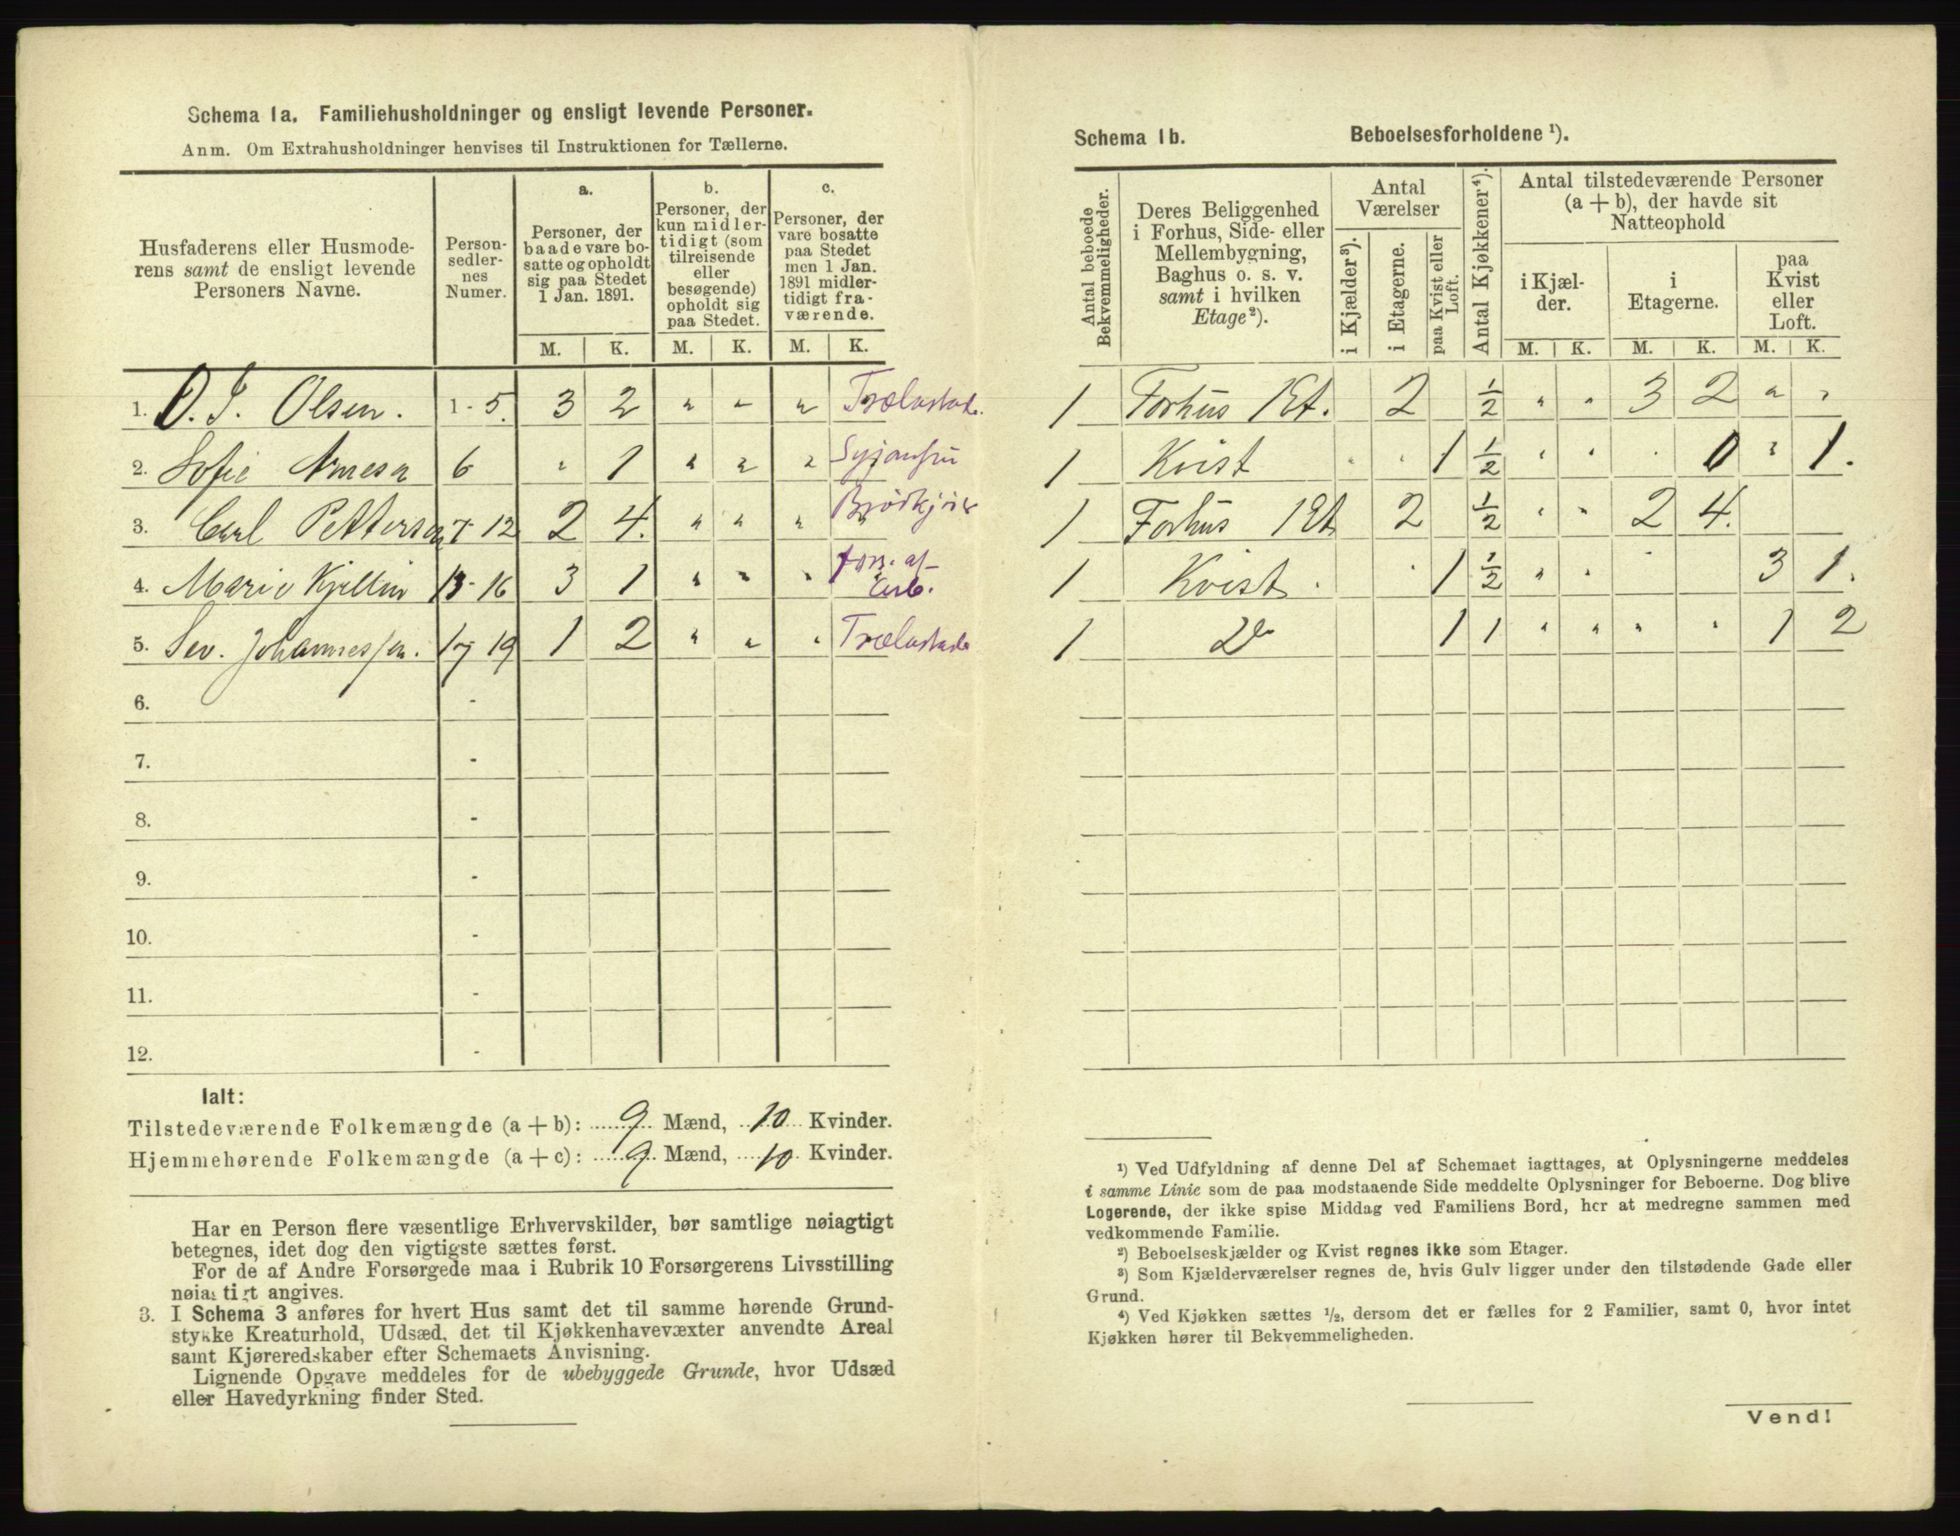 Schema 1a. Familiehusholdninger og ensligt levende Personer.
Anm. Om Extrahusholdninger henvises til Instruktionen for Tællerne.
Husfaderens eller Husmode-
rens samt de ensligt levende
Personers Navne.
Person-
sedler-
nes
Numer.
a.
Personer, der
baade vare bo-
satte og opholdt
sig paa Stedet
1 Jan. 1891.
b.
Personer, der
kun midler-
tidigt (som
tilreisende
eller
besøgende)
opholdt sig
paa Stedet.
c.
Personer, der
vare bosatte
paa Stedet
men 1 Jan.
1891 midler-
tidigt fra-
værende.
M. K. M. K. M. K.
1. O. J. Olsen. 1 - 5. 3 2 " " "
2. Sofie 6 " 1 " " "
3. Carl Pettersen 7 - 12 2 4. " " "
4. Marie 13 - 16 3 1 " " "
5. Sev. Johannessen. 17 19 1 2 " " "
6. -
7. -
8. -
9. -
10. -
11. -
12. -
Ialt:
Tilstedeværende Folkemængde (a + b): 9 Mænd, 10 Kvinder.
Hjemmehørende Folkemængde (a + c): 9 Mænd, 10 Kvinder.
Har en Person flere væsentlige Erhvervskilder, bør samtlige nøiagtigt
betegnes, idet dog den vigtigste sættes først.
For de af Andre Forsørgede maa i Rubrik 10 Forsørgerens Livsstilling
nøiagtigt angives.
3. I Schema 3 anføres for hvert Hus samt det til samme hørende Grund-
stykke Kreaturhold, Udsæd, det til Kjøkkenhavevæxter anvendte Areal
samt Kjøreredskaber efter Schemaets Anvisning.
Lignende Opgave meddeles for de ubebyggede Grunde, hvor Udsæd
eller Havedyrkning finder Sted.
Schema 1b. Beboelsesforholdene ¹).
Antal beboede
Bekvemmeligheder.
Deres Beliggenhed
i Forhus, Side- eller
Mellembygning,
Baghus o. s. v.
samt i hvilken
Etage ²).
Antal
Værelser
i Kjælder ³).
i Etagerne.
paa Kvist eller
Loft.
Antal Kjøkkener ⁴).
Antal tilstedeværende Personer
(a + b), der havde sit
Natteophold
i Kjæl-
der.
i
Etagerne.
paa
Kvist
eller
Loft.
M. K. M. K. M. K.
1 Forhus 1 Et. 2 ½ " " 3 2 " "
1 Kvist " " 1 ½ " " " 0 " 1.
1 Forhus 1 Et 2 ½ " " 2 4.
1 Kvist. " 1 ½ " " " 3 1.
1 Do 1 1 " " " " 1 2
¹) Ved Udfyldning af denne Del af Schemaet iagttages, at Oplysningerne meddeles
i samme Linie som de paa modstaaende Side meddelte Oplysninger for Beboerne. Dog blive
Logerende, der ikke spise Middag ved Familiens Bord, her at medregne sammen med
vedkommende Familie.
²) Beboelseskjælder og Kvist regnes ikke som Etager.
³) Som Kjælderværelser regnes de, hvis Gulv ligger under den tilstødende Gade eller
Grund.
⁴) Ved Kjøkken sættes ½, dersom det er fælles for 2 Familier, samt 0, hvor intet
Kjøkken hører til Bekvemmeligheden.
Vend!